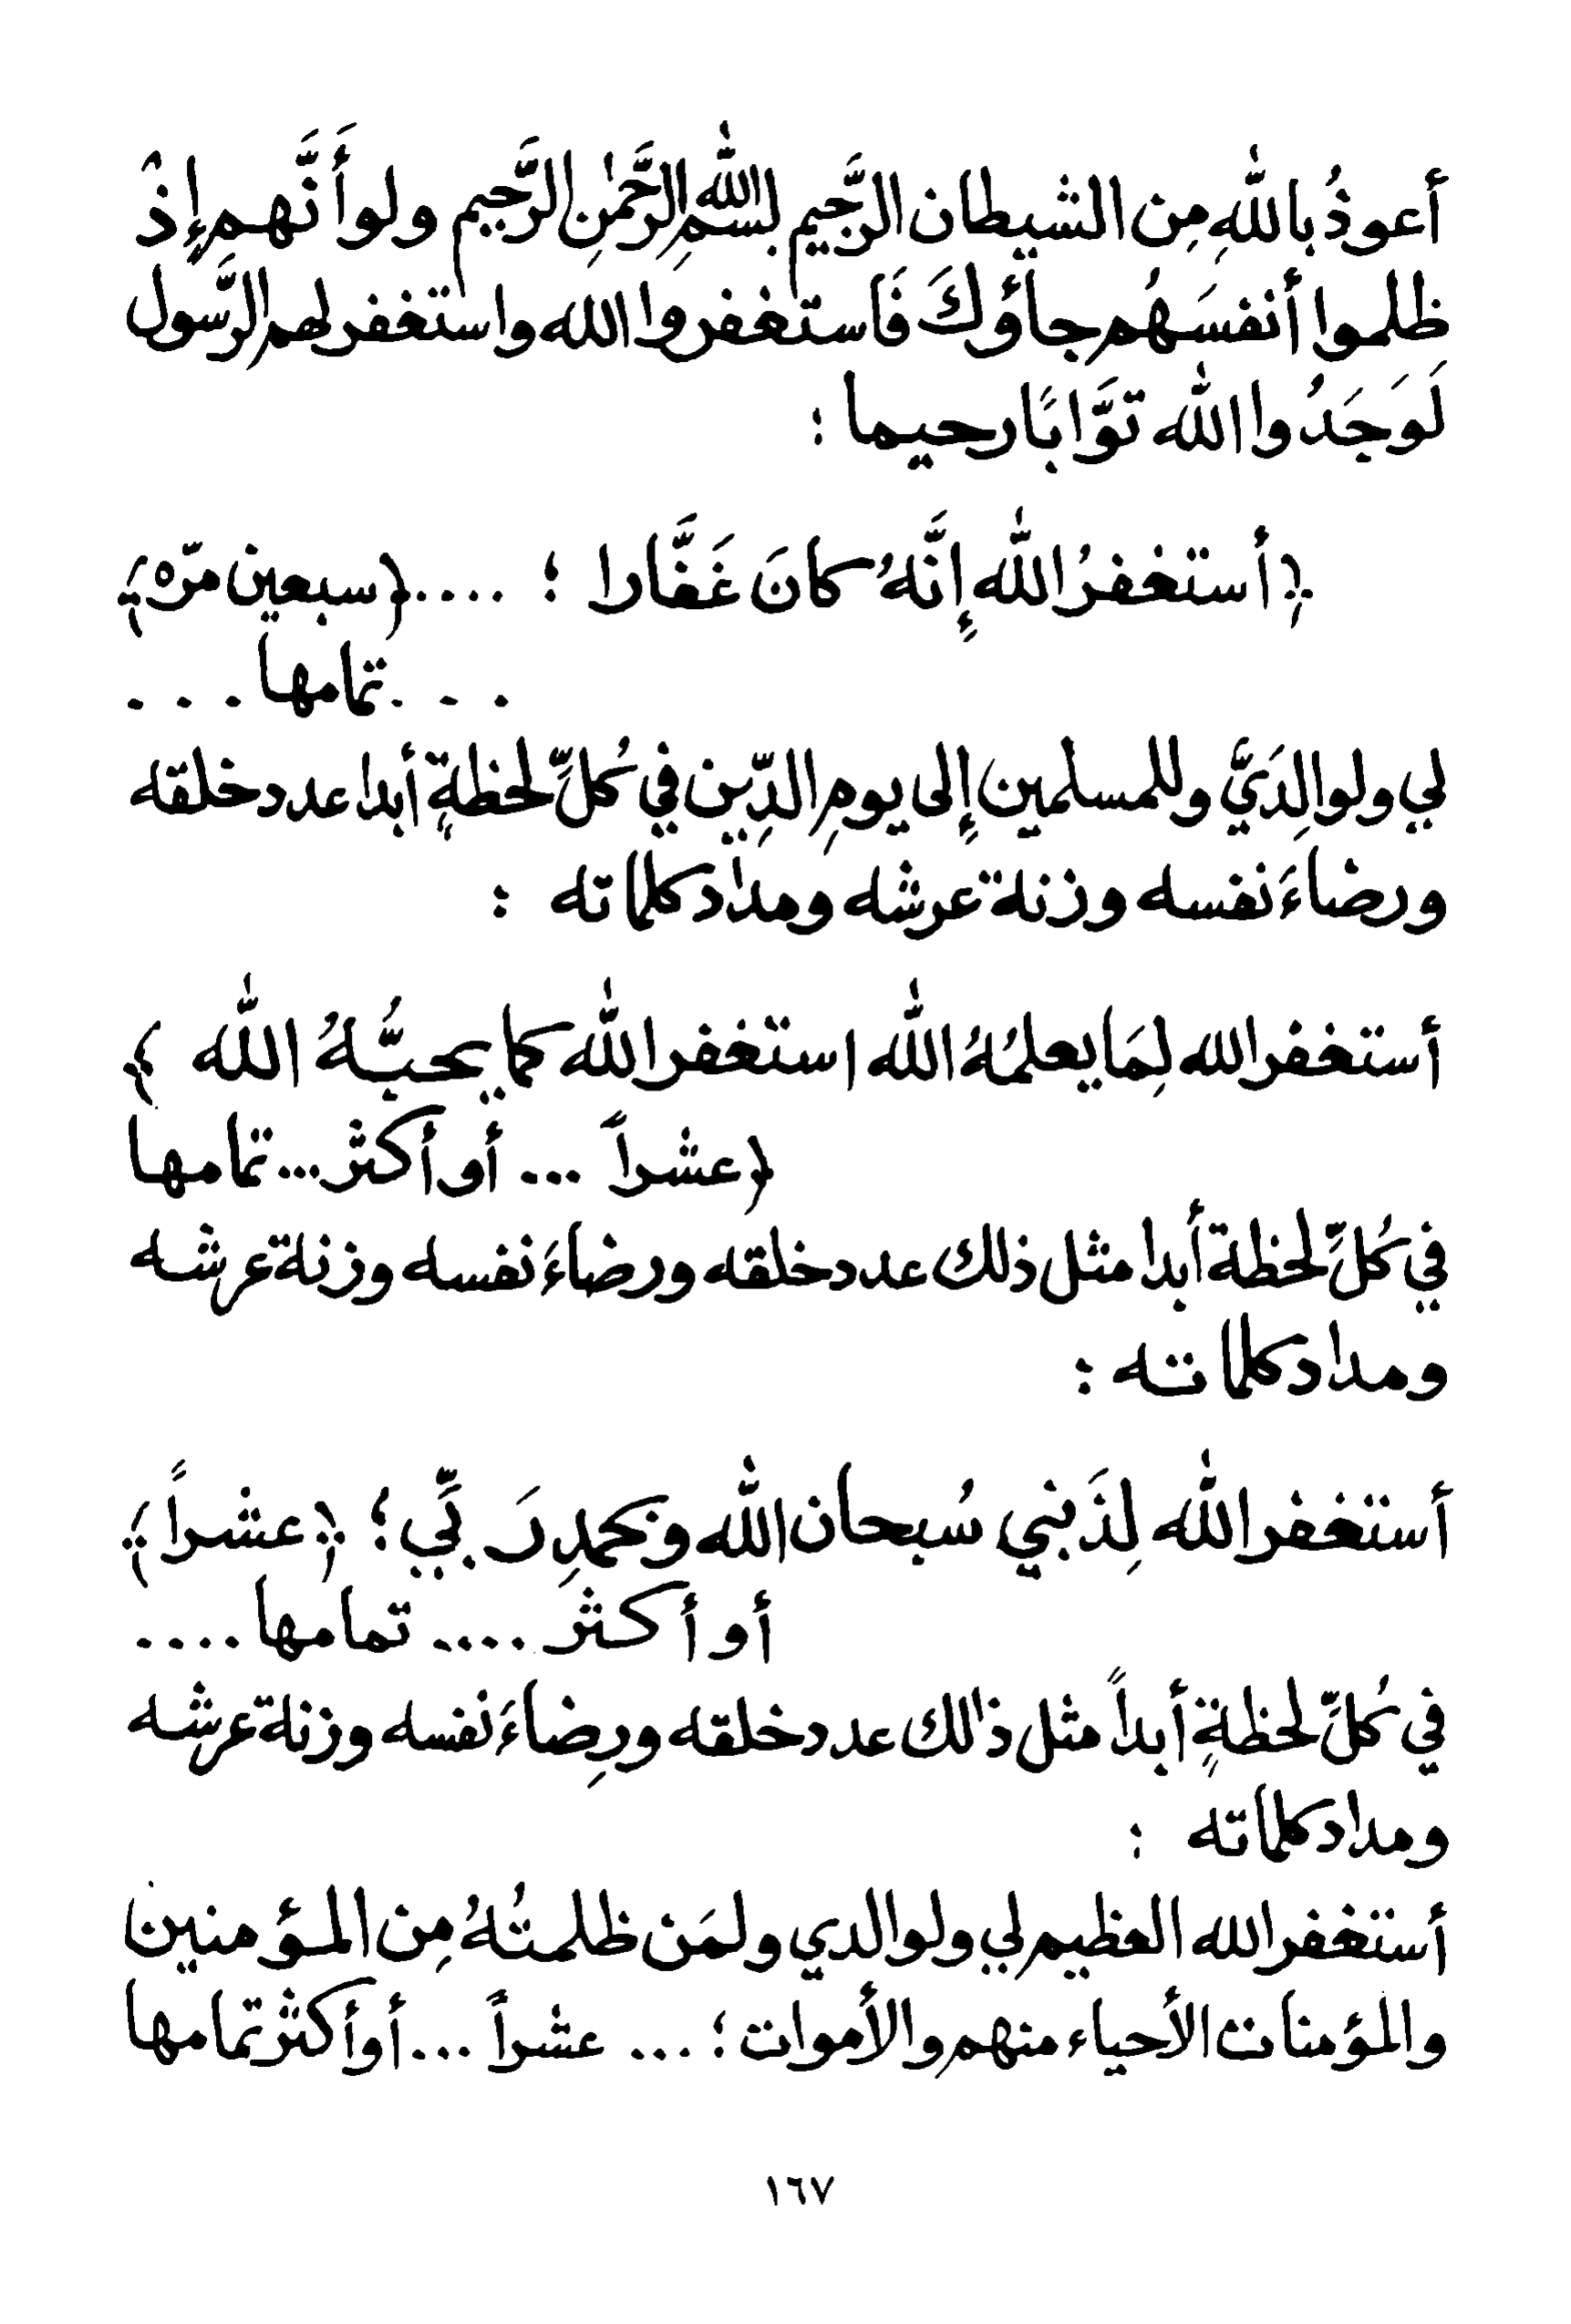 أعوذُ باللهِ مِن الشيطان الرَّجيم بسم اللهِ الرَّحمٰنِ الرَّجيم ولو أَنَّهم إِذْ
ظلموا أنفسَهُم جاؤكَ فَاستغفروا الله واستغفر لهم الرَّسول
لَوَجَدُوا الله توَّابًا رحيما :
﴿أستغفرُ الله إِنَّهُ كانَ غَفَّارا ؛ ....﴿سبعين مرّه﴾
. . . تمامها . . .
لي ولوالِدَيَّ وللمسلمين إِلى يومِ الدِّين في كُلِّ لحظةٍ أبدا عدد خلقه
ورضاءَ نفسه وزنة عرشه ومداد كلماته :
أستغفر الله لِمَا يعلمُهُ الله استغفر الله كما يحبُّهُ الله ﴾
﴿عشراً ... أو أكثر ... تمامها
في كُلِّ لحظة أبدا مثل ذلك عدد خلقه ورضاءَ نفسه وزنة عرشه
ومداد كلماته :
أستغفر الله لِذَنبي سُبحان الله وبحمدِ رَبِّي ؛ ﴿عشراً﴾
أو أكثر .... تمامها ....
في كُلِّ لحظةٍ أبداً مثل ذالك عدد خلقه ورِضاءَ نفسه وزنة عرشه
ومداد كلماته :
أستغفر الله العظيم لي ولوالدي ولمَن ظلمتُهُ مِن المؤمنين
والمؤمنات الأحياء منهم والأموات ؛ ... عشراً ... أو أكثر تمامها
١٦٧